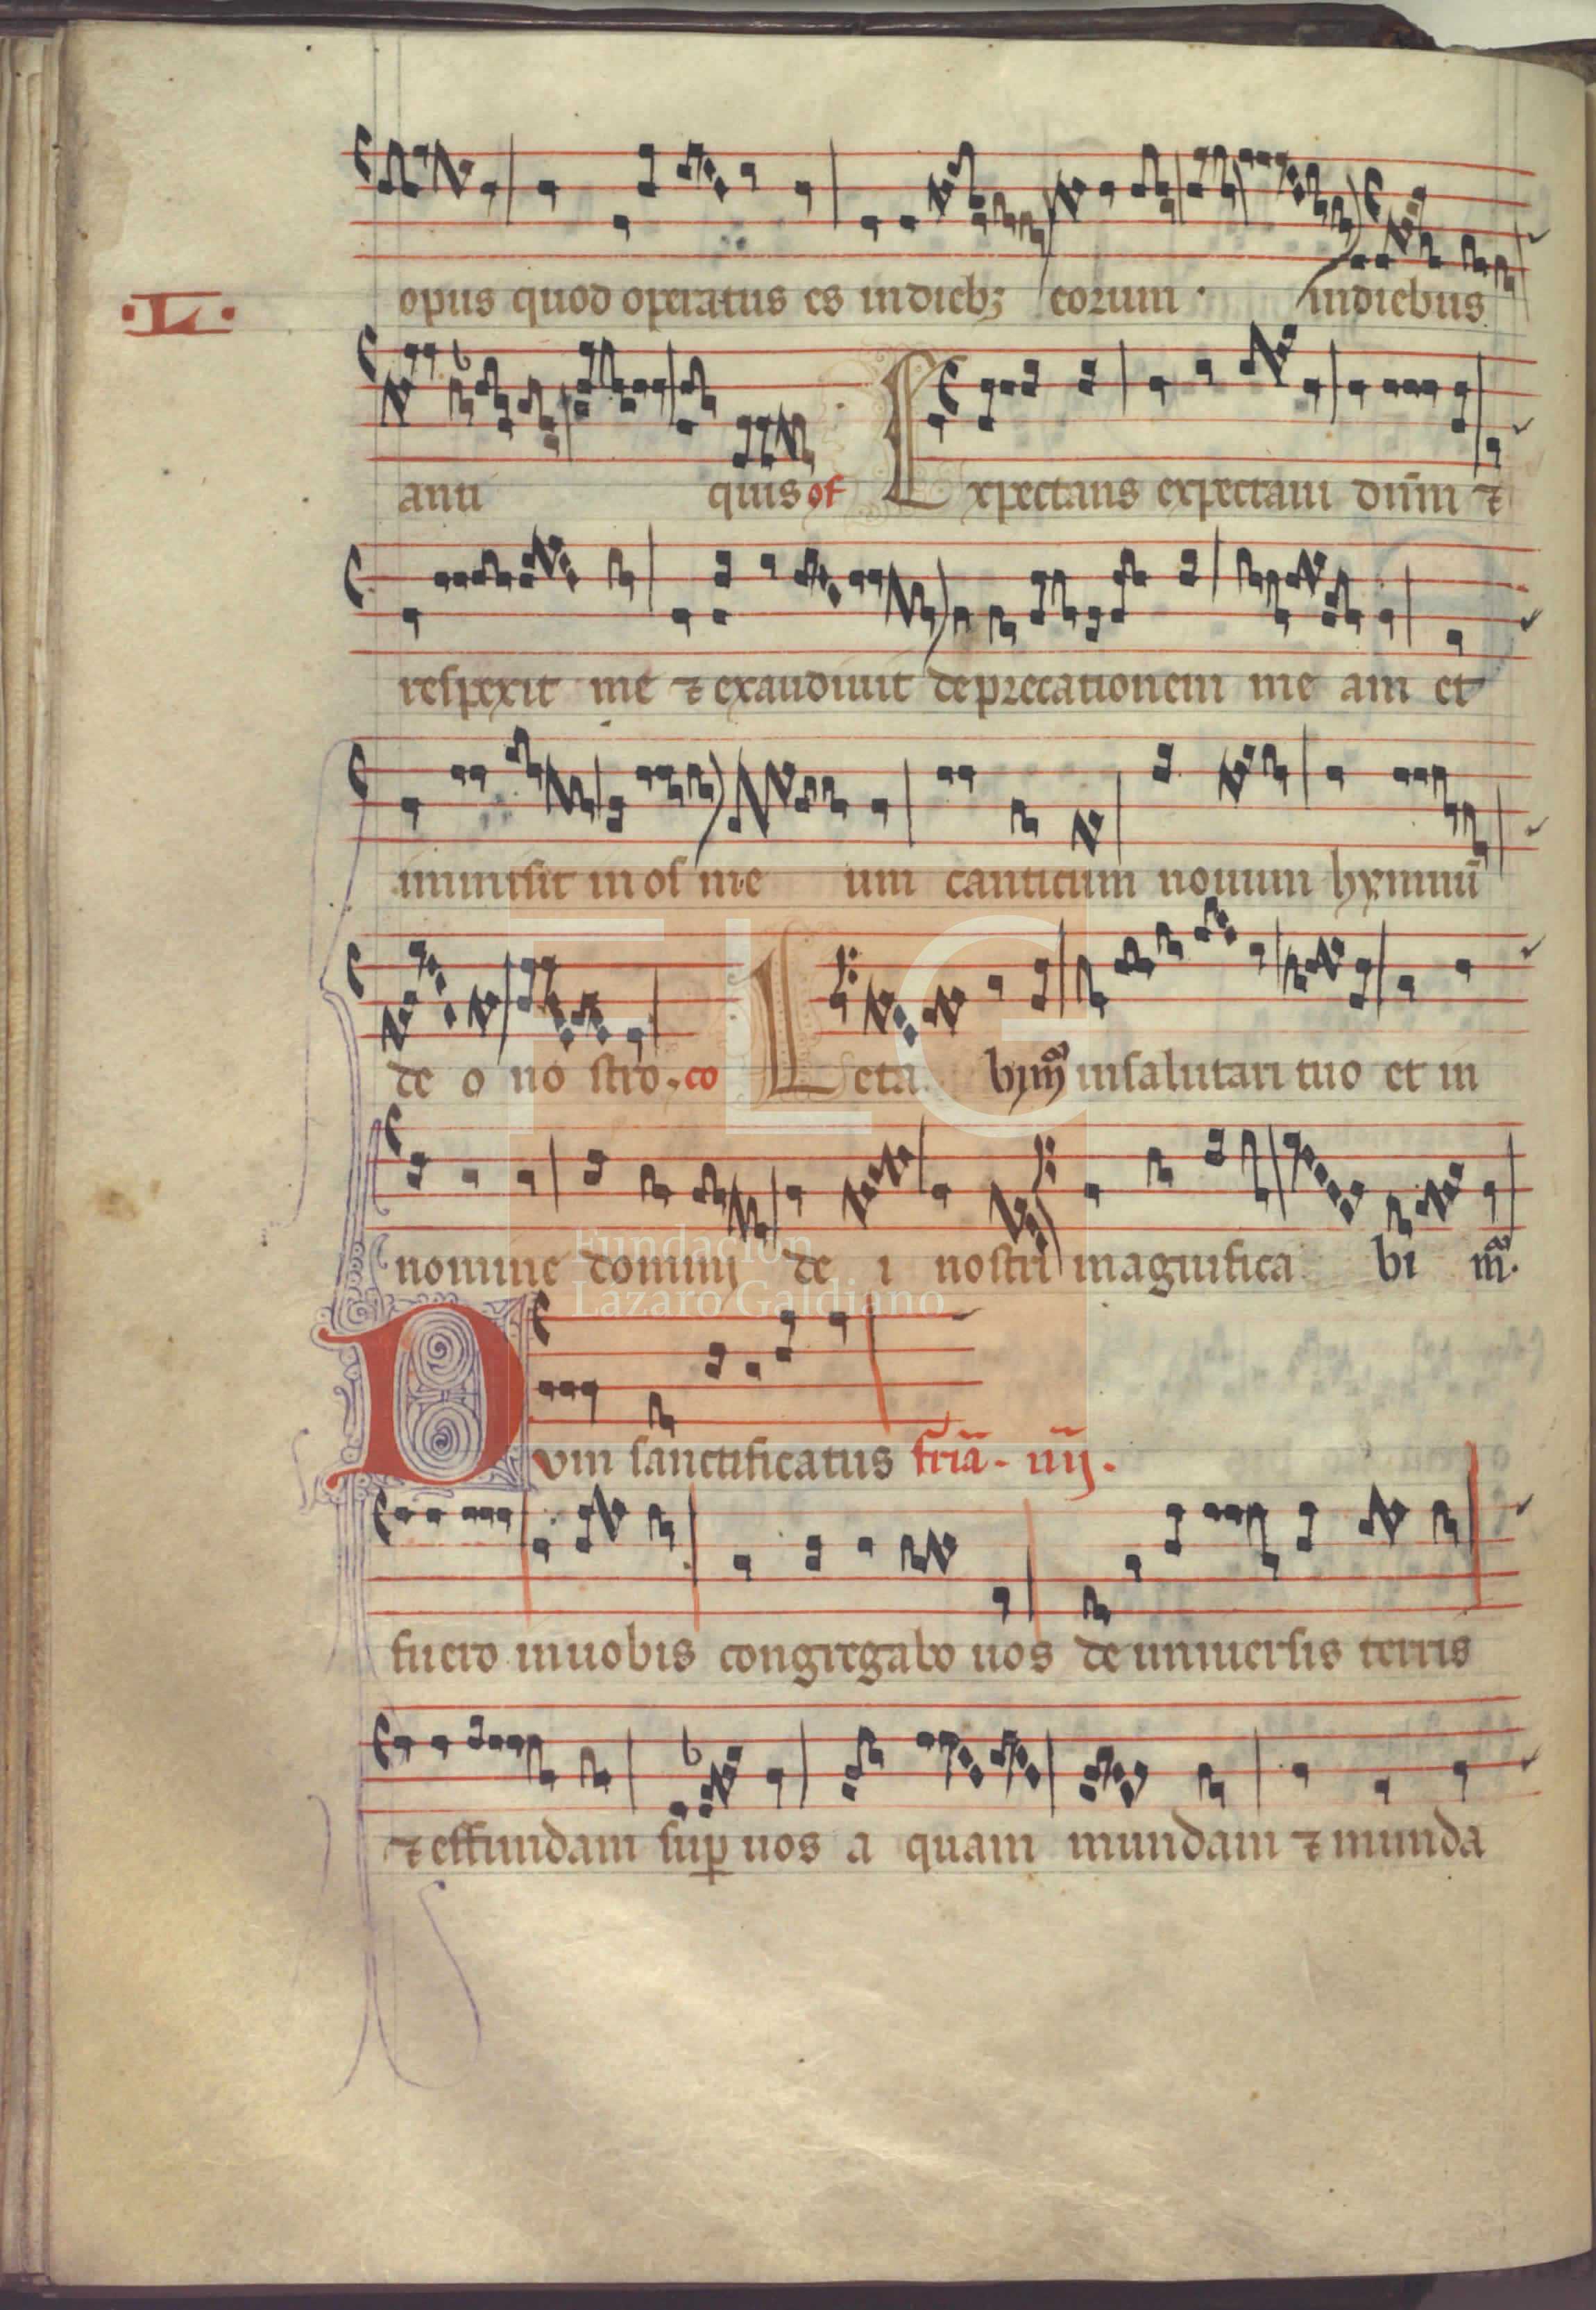 opus quod operatus es in dieb; eorum · in diebus
·L·
anti quis of Expectans expectaui dñm ⁊
respexit me ⁊ exaudiuit deprecationem me am et
inmisit in os me um canticum nouum hymnũ
de o no stro. co Leta bimꝰ in salutari tuo et in
nomine domini de i nostri magnifica bi mꝰ.
Dum sanctificatus fr̃ia. iiij.
fuero in uobis congregabo uos de uniuersis terris
⁊ effundam suꝑ uos a quam mundam ⁊ munda
FLG
Fundación
Lázaro Galdiano